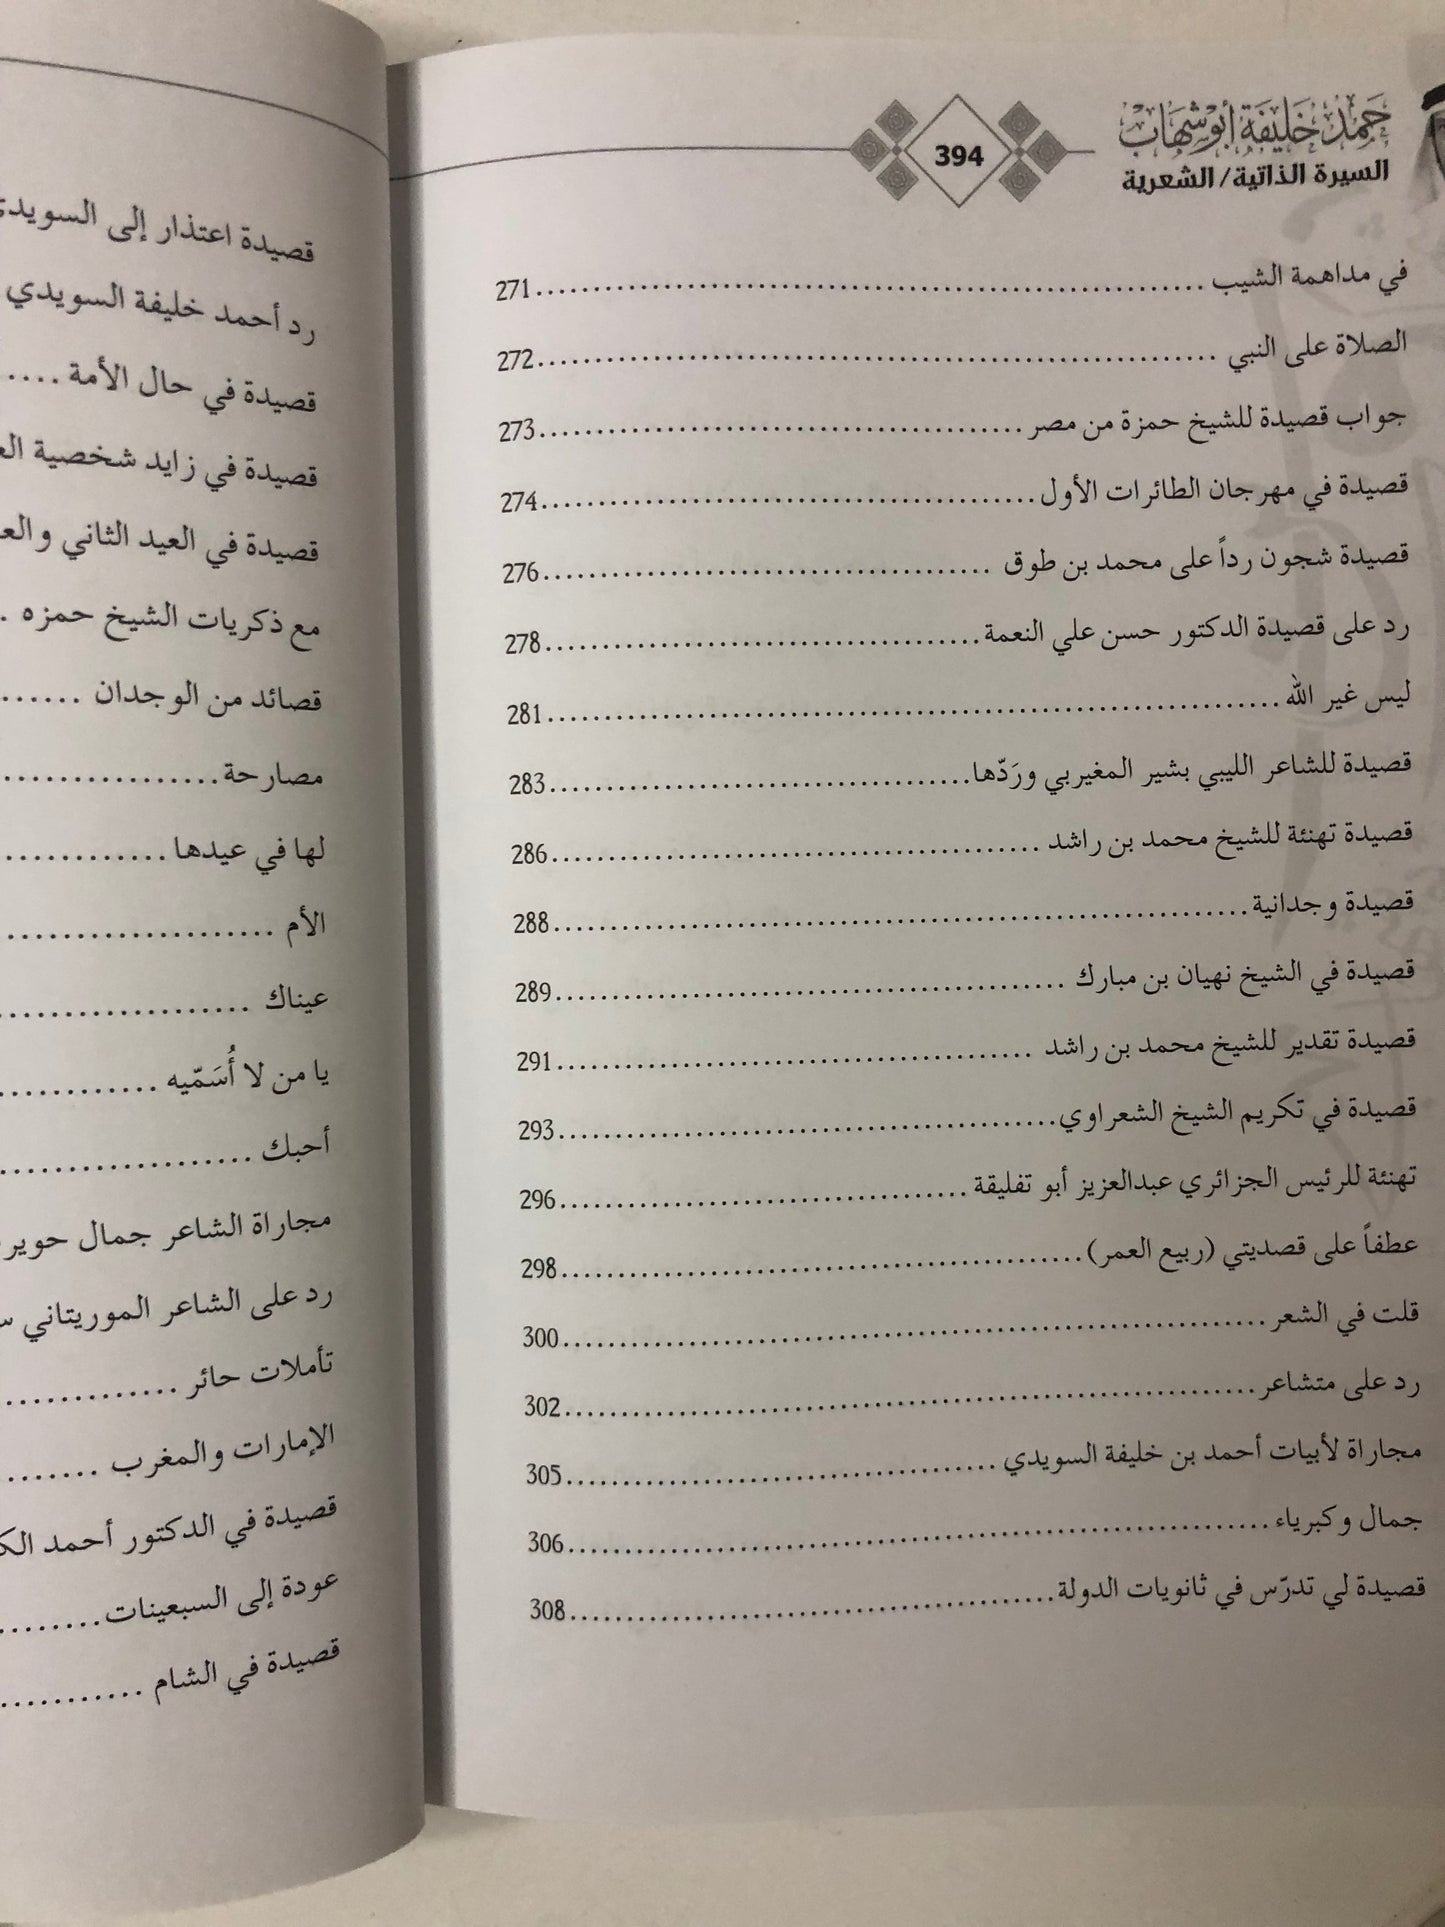 حمد خليفة أبو شهاب
السيرة الذاتية/الشعرية
394
في مداهمة الشيب ........ 271
الصلاة على النبي ........ 272
جواب قصيدة للشيخ حمزة من مصر ........ 273
قصيدة في مهرجان الطائرات الأول ........ 274
قصيدة شجون رداً على محمد بن طوق ........ 276
رد على قصيدة الدكتور حسن علي النعمة ........ 278
ليس غير الله ........ 281
قصيدة للشاعر الليبي بشير المغيربي ورَدّها ........ 283
قصيدة تهنئة للشيخ محمد بن راشد ........ 286
قصيدة وجدانية ........ 288
قصيدة في الشيخ نهيان بن مبارك ........ 289
قصيدة تقدير للشيخ محمد بن راشد ........ 291
قصيدة في تكريم الشيخ الشعراوي ........ 293
تهنئة للرئيس الجزائري عبدالعزيز أبو تفليقة ........ 296
عطفاً على قصديتي (ربيع العمر) ........ 298
قلت في الشعر ........ 300
رد على متشاعر ........ 302
مجاراة لأبيات أحمد بن خليفة السويدي ........ 305
جمال وكبرياء ........ 306
قصيدة لي تدرّس في ثانويات الدولة ........ 308
قصيدة اعتذار إلى
رد أحمد خليفة السويدي
قصيدة في حال الأمة ....
قصيدة في زايد شخصية
قصيدة في العيد الثاني
مع ذكريات الشيخ حمزه .
قصائد من الوجدان ......
مصارحة ........
لها في عيدها ........
الأم ........
عيناك ........
يا من لا أُسَمّيه ........
أحبك ........
مجاراة الشاعر جمال
رد على الشاعر الموريتاني
تأملات حائر ........
الإمارات والمغرب .......
قصيدة في الدكتور أحمد
عودة إلى السبعينات ........
قصيدة في الشام ........